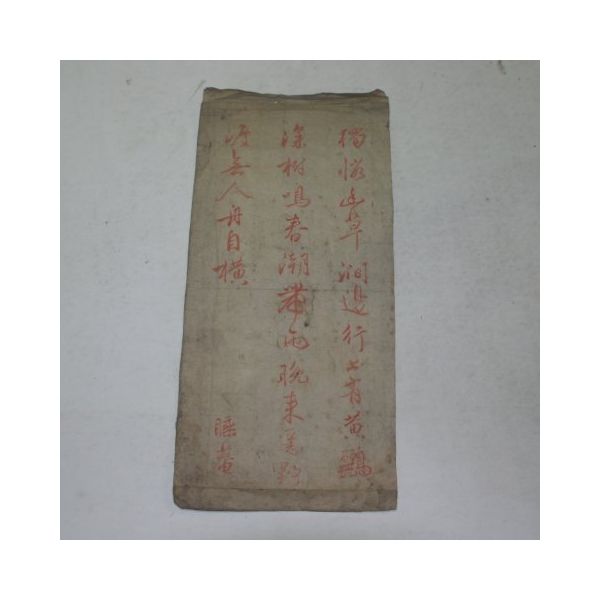 獨憐幽草澗邊行上有黃鸝
深樹鳴春潮帶雨晩來急野
渡無人舟自橫